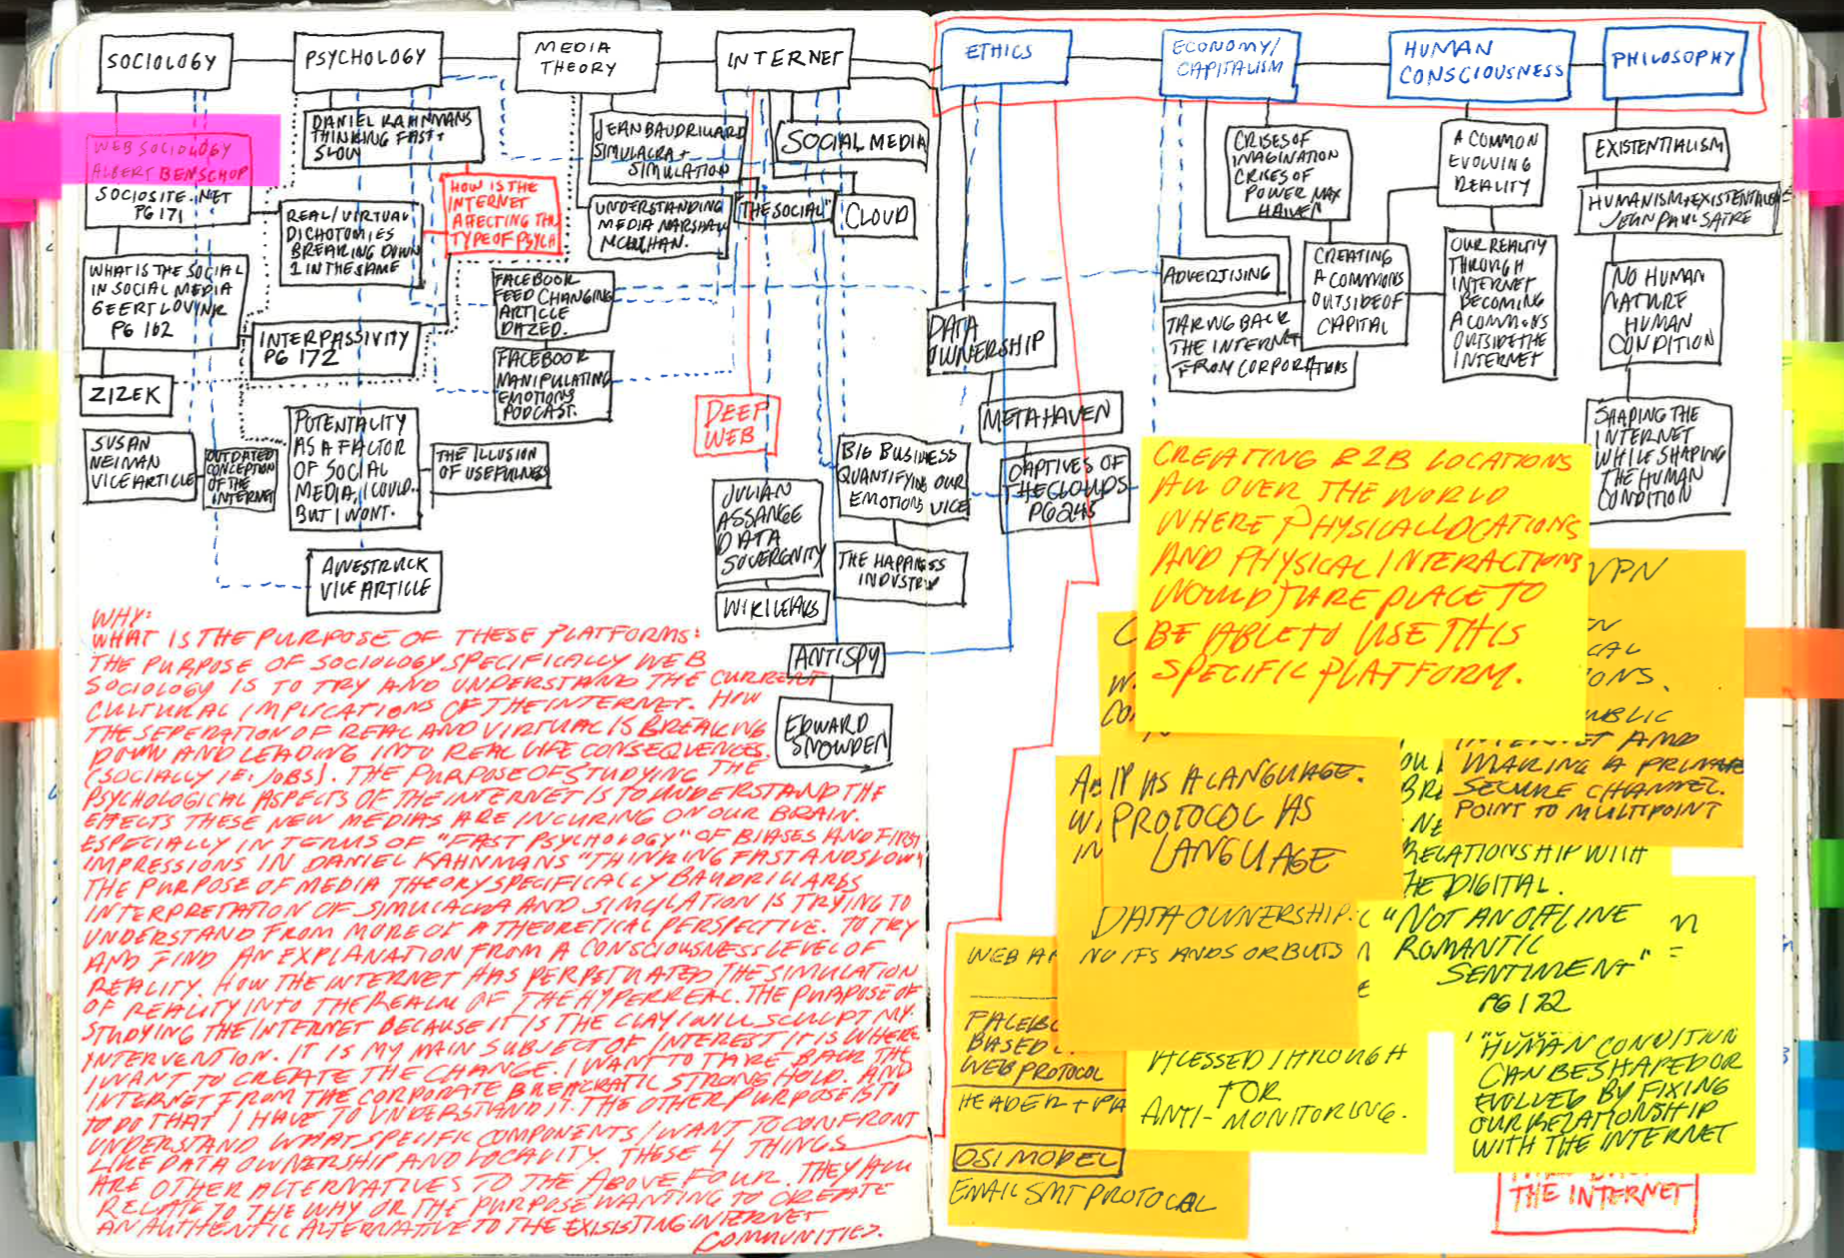 SOCIOLOGY
PSYCHOLOGY
MEDIA
THEORY
INTERNET
ETHICS
ECONOMY/
CAPITALISM
HUMAN
CONSCIOUSNESS
PHILOSOPHY
WEB SOCIOLOGY
ALBERT BENSCHOP
SOCIOSITE.NET
PG 171
WHAT IS THE SOCIAL
IN SOCIAL MEDIA
GEERT LOVINK
PG 162
ZIZEK
SUSAN
NEIMAN
VICE ARTICLE
OUTDATED
CONCEPTION
OF THE
INTERNET
DANIEL KAHNMANS
THINKING FAST +
SLOW
HOW IS THE
INTERNET
AFFECTING THE
TYPE OF PSYCH
REAL/VIRTUAL
DICHOTOMIES
BREAKING DOWN
1 IN THE SAME
INTERPASSIVITY
PG 172
POTENTALITY
AS A FACTOR
OF SOCIAL
MEDIA, I COULD..
BUT I WONT.
THE ILLUSION
OF USEFULNESS
AWESTRUCK
VICE ARTICLE
JEAN BAUDRILLARD
SIMULACRA +
SIMULATION
UNDERSTANDING
MEDIA MARSHALL
MCLUHAN.
FACEBOOK
FEED CHANGING
ARTICLE
DAZED.
FACEBOOK
MANIPULATING
EMOTIONS
PODCAST.
SOCIAL MEDIA
"THE SOCIAL"
CLOUD
DEEP
WEB
JULIAN
ASSANGE
DATA
SOVERGNITY
WIKILEAKS
BIG BUSINESS
QUANTIFYING OUR
EMOTIONS VICE
THE HAPPINESS
INDUSTRY
ANTISPY
EDWARD
SNOWDEN
DATA
OWNERSHIP
METAHAVEN
CAPTIVES OF
THE CLOUDS
PG 245
CRISES OF
IMAGINATION
CRISES OF
POWER MAX
HAIVEN
ADVERTISING
CREATING
A COMMONS
OUTSIDE OF
CAPITAL
TAKING BACK
THE INTERNET
FROM CORPORATIONS
A COMMON
EVOLVING
REALITY
OUR REALITY
THROUGH
INTERNET
BECOMING
A COMMONS
OUTSIDE THE
INTERNET
EXISTENTIALISM
HUMANISM + EXISTENTIALISM
JEAN PAUL SATRE
NO HUMAN
NATURE
HUMAN
CONDITION
SHAPING THE
INTERNET
WHILE SHAPING
THE HUMAN
CONDITION
WHY:
WHAT IS THE PURPOSE OF THESE PLATFORMS:
THE PURPOSE OF SOCIOLOGY, SPECIFICALLY WEB
SOCIOLOGY IS TO TRY AND UNDERSTAND THE CURRENT
CULTURAL IMPLICATIONS OF THE INTERNET. HOW
THE SEPERATION OF REAL AND VIRTUAL IS BREAKING
DOWN AND LEADING INTO REAL LIFE CONSEQUENCES.
(SOCIALLY IE: JOBS). THE PURPOSE OF STUDYING THE
PSYCHOLOGICAL ASPECTS OF THE INTERNET IS TO UNDERSTAND THE
EFFECTS THESE NEW MEDIAS ARE INCURING ON OUR BRAIN.
ESPECIALLY IN TERMS OF "FAST PSYCHOLOGY" OF BIASES AND FIRST
IMPRESSIONS IN DANIEL KAHNMANS "THINKING FAST AND SLOW"
THE PURPOSE OF MEDIA THEORY SPECIFICALLY BAUDRILLARDS
INTERPRETATION OF SIMULACRA AND SIMULATION IS TRYING TO
UNDERSTAND FROM MORE OF A THEORETICAL PERSPECTIVE. TO TRY
AND FIND AN EXPLANATION FROM A CONSCIOUSNESS LEVEL OF
REALITY. HOW THE INTERNET HAS PERPETRATED THE SIMULATION
OF REALITY INTO THE REALM OF THE HYPERREAL. THE PURPOSE OF
STUDYING THE INTERNET BECAUSE IT IS THE CLAY I WILL SCULPT MY
INTERVENTION. IT IS MY MAIN SUBJECT OF INTEREST IT IS WHERE
I WANT TO CREATE THE CHANGE. I WANT TO TAKE BACK THE
INTERNET FROM THE CORPORATE BREACRATIC STRONG HOLD. AND
TO DO THAT I HAVE TO UNDERSTAND IT. THE OTHER PURPOSE IS TO
UNDERSTAND WHAT SPECIFIC COMPONENTS I WANT TO CONFRONT
LIKE DATA OWNERSHIP AND LOCALITY. THESE 4 THINGS
ARE OTHER ALTERNATIVES TO THE ABOVE FOUR. THEY ALL
RELATE TO THE WHY OR THE PURPOSE WANTING TO CREATE
AN AUTHENTIC ALTERNATIVE TO THE EXISISTING INTERNET
COMMUNITIES.
CREATING B2B LOCATIONS
ALL OVER THE WORLD
WHERE PHYSICAL LOCATIONS
AND PHYSICAL INTERACTIONS
WOULD TAKE PLACE TO
BE ABLE TO USE THIS
SPECIFIC PLATFORM.
VPN
INTERNET AND
MAKING A PRIVATE
SECURE CHANNEL.
POINT TO MULTIPOINT
IP AS A LANGUAGE.
PROTOCOL AS
LANGUAGE
RELATIONSHIP WITH
THE DIGITAL.
DATA OWNERSHIP:
NO IFS ANDS OR BUTS
"NOT AN OFFLINE
ROMANTIC
SENTIMENT"
PG 122
WEB
BASED
WEB PROTOCOL
HEADER +
OSI MODEL
EMAIL SMT PROTOCOL
ACESSED THROUGH
TOR
ANTI-MONITORING.
HUMAN CONDITION
CAN BE SHAPED OR
EVOLVED BY FIXING
OUR RELATIONSHIP
WITH THE INTERNET
THE INTERNET